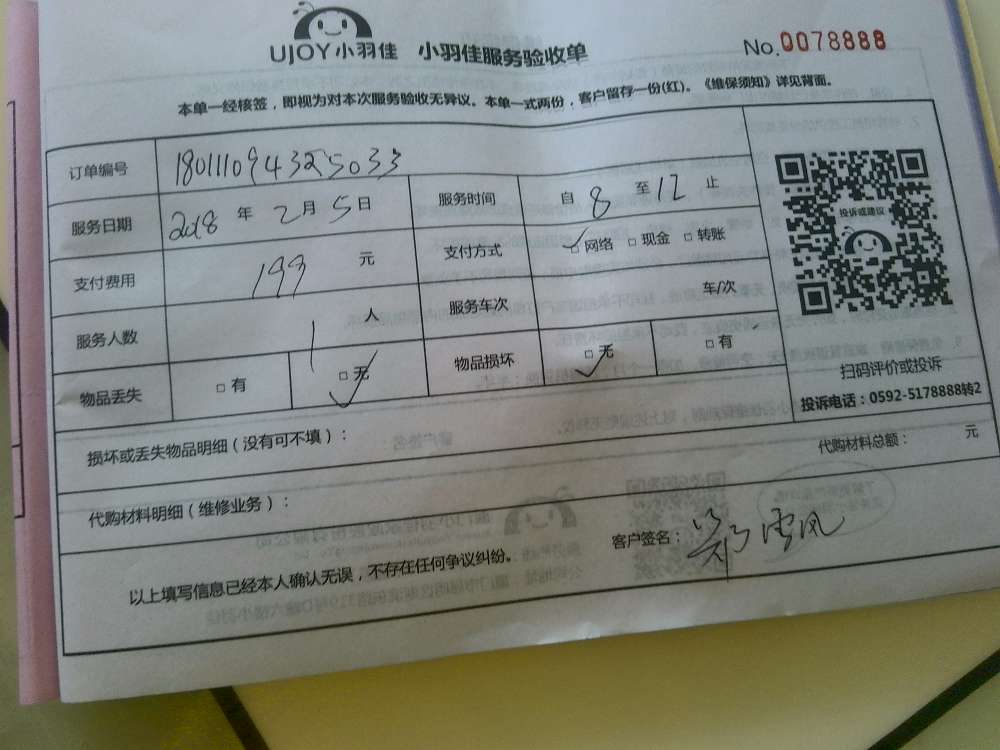 UJOY小羽佳 小羽佳服务验收单 No.0078888
本单一经核签，即视为对本次服务验收无异议。本单一式两份，客户留存一份(红)。《维保须知》详见背面。
订单编号 180111094325033
服务日期 2018 年 2 月 5 日 服务时间 自 8 至 12 止
支付费用 199 元 支付方式 □网络 □现金 □转账
服务人数 1 人 服务车次 车/次
物品丢失 □有 □无 物品损坏 □无 □有
投诉或建议
扫码评价或投诉
投诉电话：0592-5178888转2
损坏或丢失物品明细（没有可不填）：
代购材料明细（维修业务）： 代购材料总额： 元
以上填写信息已经本人确认无误，不存在任何争议纠纷。 客户签名：